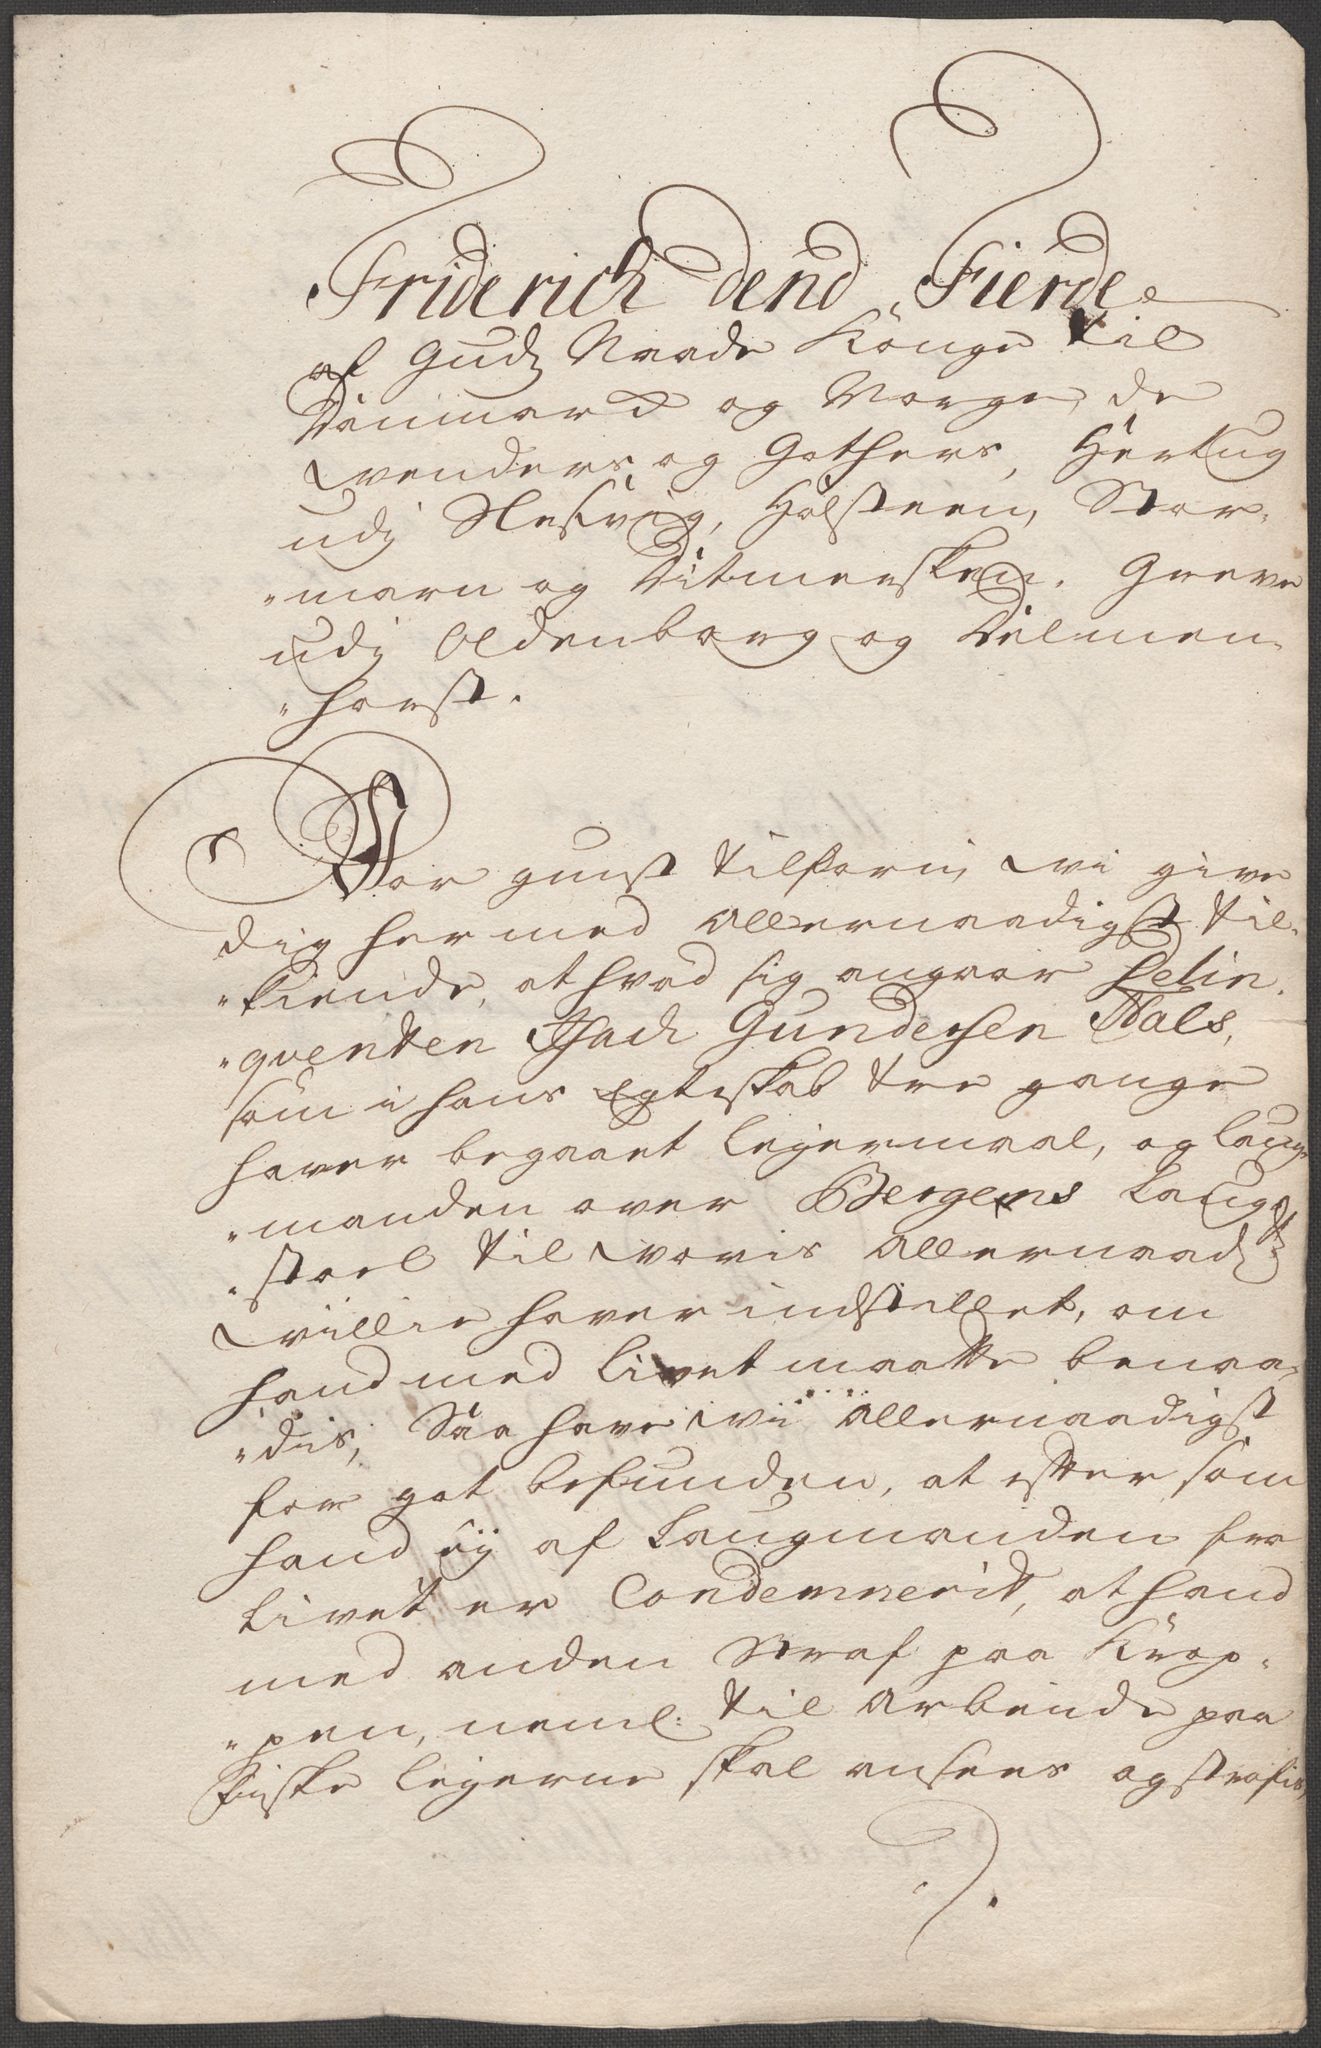 Friderich dend Fierde
af Gudz Naade Konge til
Danmarck og Norge, de
Wenders og Gothers, Hertug
udj Slesvig, Holsteen, Stor-
"marn og Ditmersken. Greve
udj Oldenborg og Delmen-
"horst.
Vor gunst tilforn, wi give
dig hermed allernaadigst til-
"kiende, at hvad sig angaar Delin-
"qventen Gundersen Hals,
som i hans Egteskab tre gange
haver begaaet lejermaal, og laug-
"manden over Bergens Laug-
"stoel til woris allernaadste
willie haver indstellet, om
hand med livet maatte benaa-
"dis, Saa have wii allernaadigst
for got befunden, at efter som
hand eij af Laugmanden fra
Livet er Condemnerit, at hand
med anden Straf paa Krop-
"pen, neml: til Arbeide paa
Fiske lejerne skal ansees og strafis,